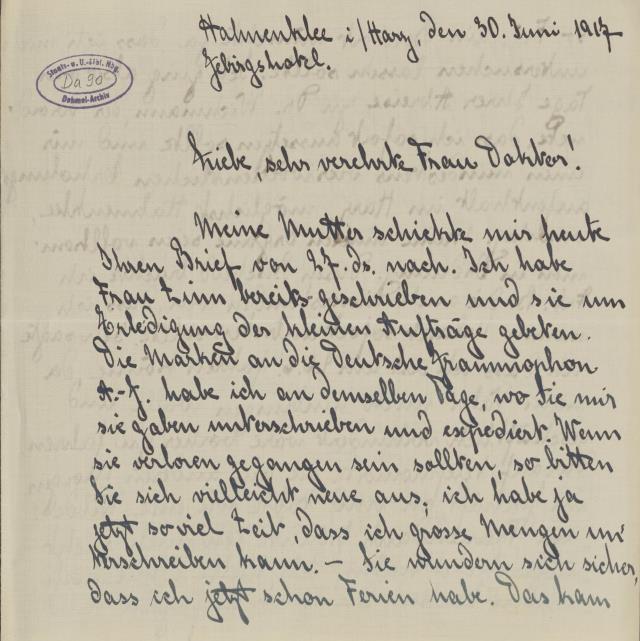 Staats- u. U.-Bibl. Hbg.
Da 90
Dehmel-Archiv
Hahnenklee i/Harz, den 30. Juni 1917
Gebirgshotel.
Liebe, sehr verehrte Frau Doktor!
Meine Mutter schickte mir heute
Ihren Brief von 27. ds. nach. Ich habe
Frau Linn bereits geschrieben und sie um
Erledigung der kleinen Aufträge gebeten.
Die Marken an die Deutsche Grammophon
A.-G. habe ich an demselben Tage, wo Sie mir
sie gaben unterschrieben und expediert. Wenn
sie verloren gegangen sein sollten, so bitten
Sie sich vielleicht neue aus, ich habe ja
jetzt so viel Zeit, dass ich grosse Mengen un
terschreiben kann. – Sie wundern sich sicher,
dass ich jetzt schon Ferien habe. Das kam